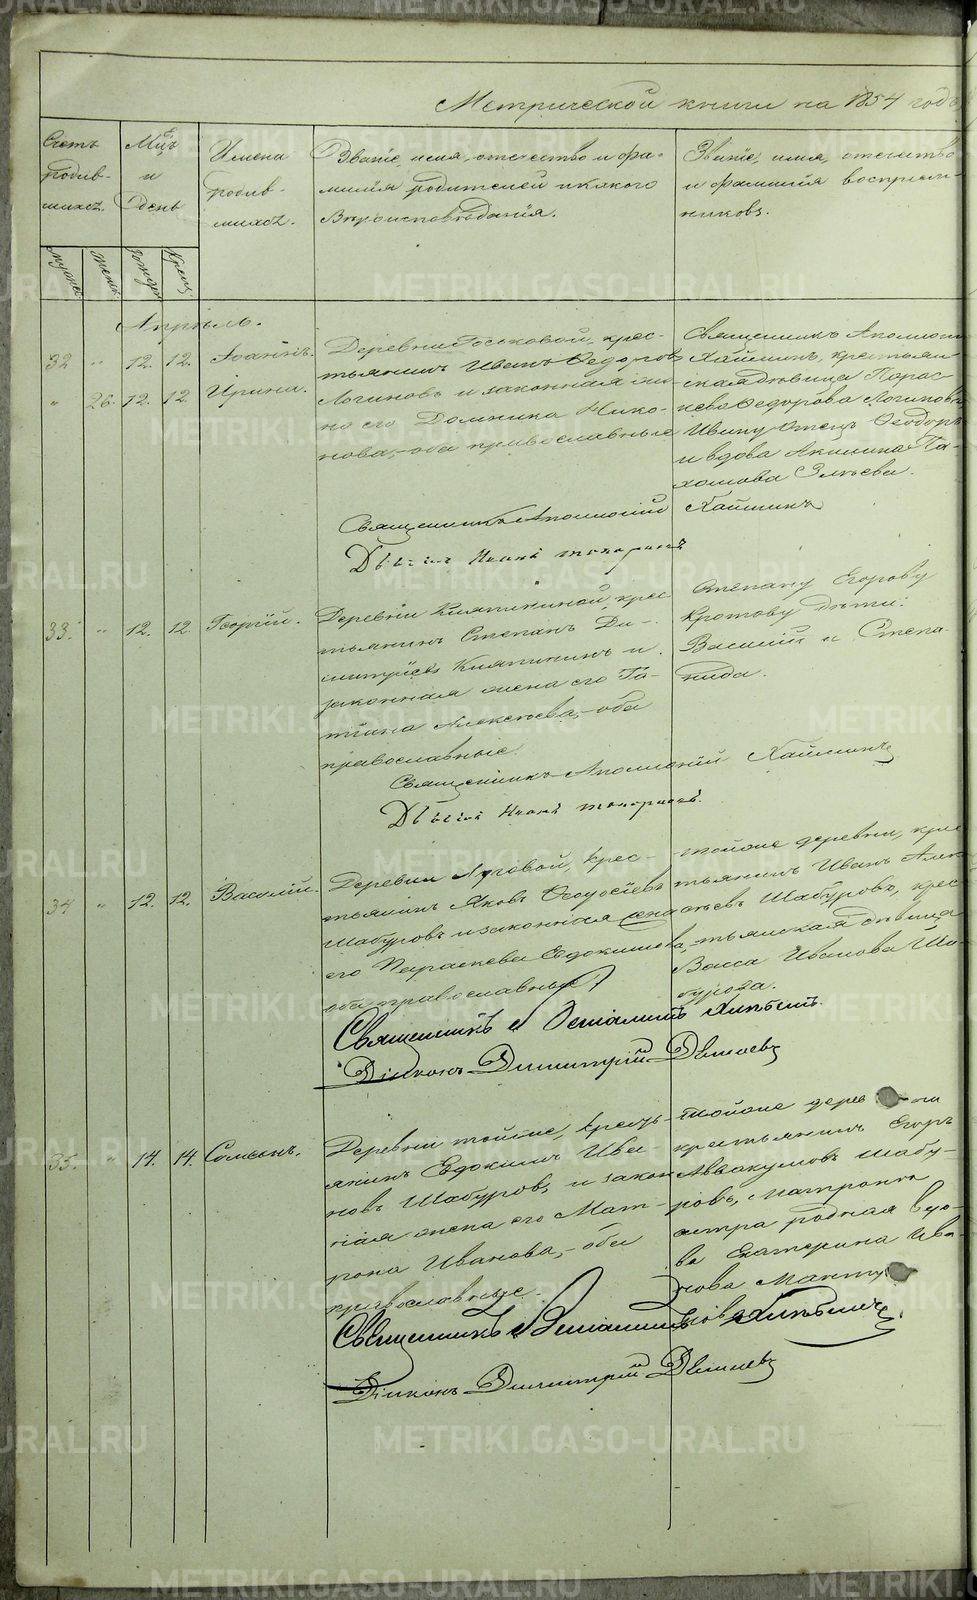 Метрической книги на 1854 годъ
Счетъ родив-
шихся.
Мцъ
и
День
Имена
родив-
шихся.
Званіе, имя, отчество и фа-
милія родителей и какого
Вѣроисповѣданія.
Званіе, имя, отчество
и фамилія воспріем-
никовъ.
мужска
женск
рожден
крещ
Апрѣль.
32 " 12. 12. Іоаннъ.
" 26. 12. 12. Ирина.
Деревни крес-
тьянинъ Иванъ Ѳедоровъ
Логиновъ и законная же-
на его Домника Нико-
нова, оба православные
Священникъ Аполлоній
Хайминъ, крестьян
ская дѣвица Парас
кева Ѳедорова Логиновы
Ивину Отецъ Ѳеодоръ
и вдова Акилина Па-
хомова
Священникъ Аполлоній Хайминъ
33. " 12. 12. Георгій.
Деревни крес
тьянинъ Степанъ Ди-
митріевъ и
законная жена его Та-
тіана Алексѣева, оба
православные.
Степану Егорову
Кротову дѣти:
Василій и Степа-
нида.
Священникъ Аполлоній Хайминъ
34 " 12. 12. Василій.
Деревни Луговой, крес-
тьянинъ Яковъ Ѳеодосіевъ
Шабуровъ и законная жена
его Параскева Евдокимова,
оба православные
тойже деревни, крес
тьянинъ Иванъ Алек
сѣевъ Шабуровъ, крес
тьянская дѣвица
Васса Иванова Ша-
бурова.
Священникъ Веніаминъ
Діаконъ Димитрій
35. " 14. 14. Симеонъ.
Деревни тойже, кресть
янинъ Евдокимъ Ива
новъ Шабуровъ, и закон
ная жена его Мат-
рона Иванова, оба
православные.
тойже дерев ни
крестьянинъ Егоръ
Аввакумовъ Шабу-
ровъ, Матроны
сестра родная вдо-
ва Екатерина Ива-
нова
Священникъ Веніаминъ
Діаконъ Димитрій
METRIKI.GASO-URAL.RU